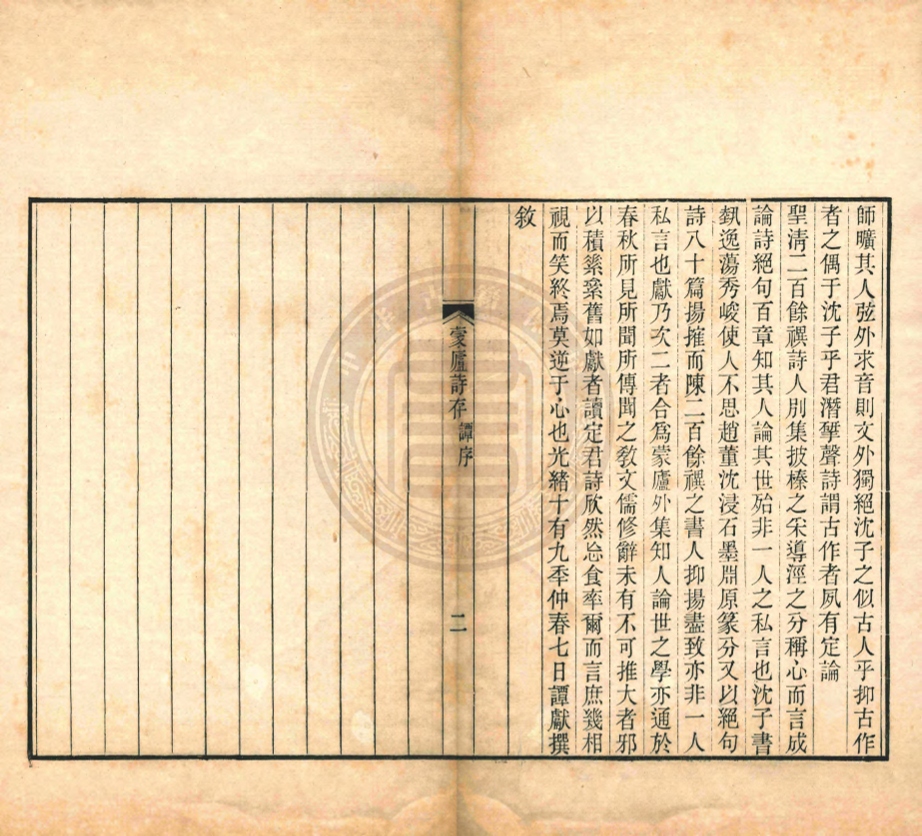 師曠其人弦外求音則文外獨絕沈子之似古人乎抑古作
者之偶于沈子乎君潛揅聲詩謂古作者夙有定論
聖淸二百餘禩詩人別集披榛之采導涇之分稱心而言成
論詩絕句百章知其人論其世殆非一人之私言也沈子書
埶逸蕩秀峻使人不思趙董沈浸石墨淵原篆分又以絕句
詩八十篇揚搉而陳二百餘禩之書人抑揚盡致亦非一人
私言也獻乃次二者合爲蒙廬外集知人論世之學亦通於
春秋所見所聞所傳聞之敎文儒修辭未有不可推大者邪
以積絫舊如獻者讀定君詩欣然忘食率爾而言庶幾相
視而笑終焉莫逆于心也光緒十有九秊仲春七日譚獻撰
敘
蒙廬詩存 譚序
二